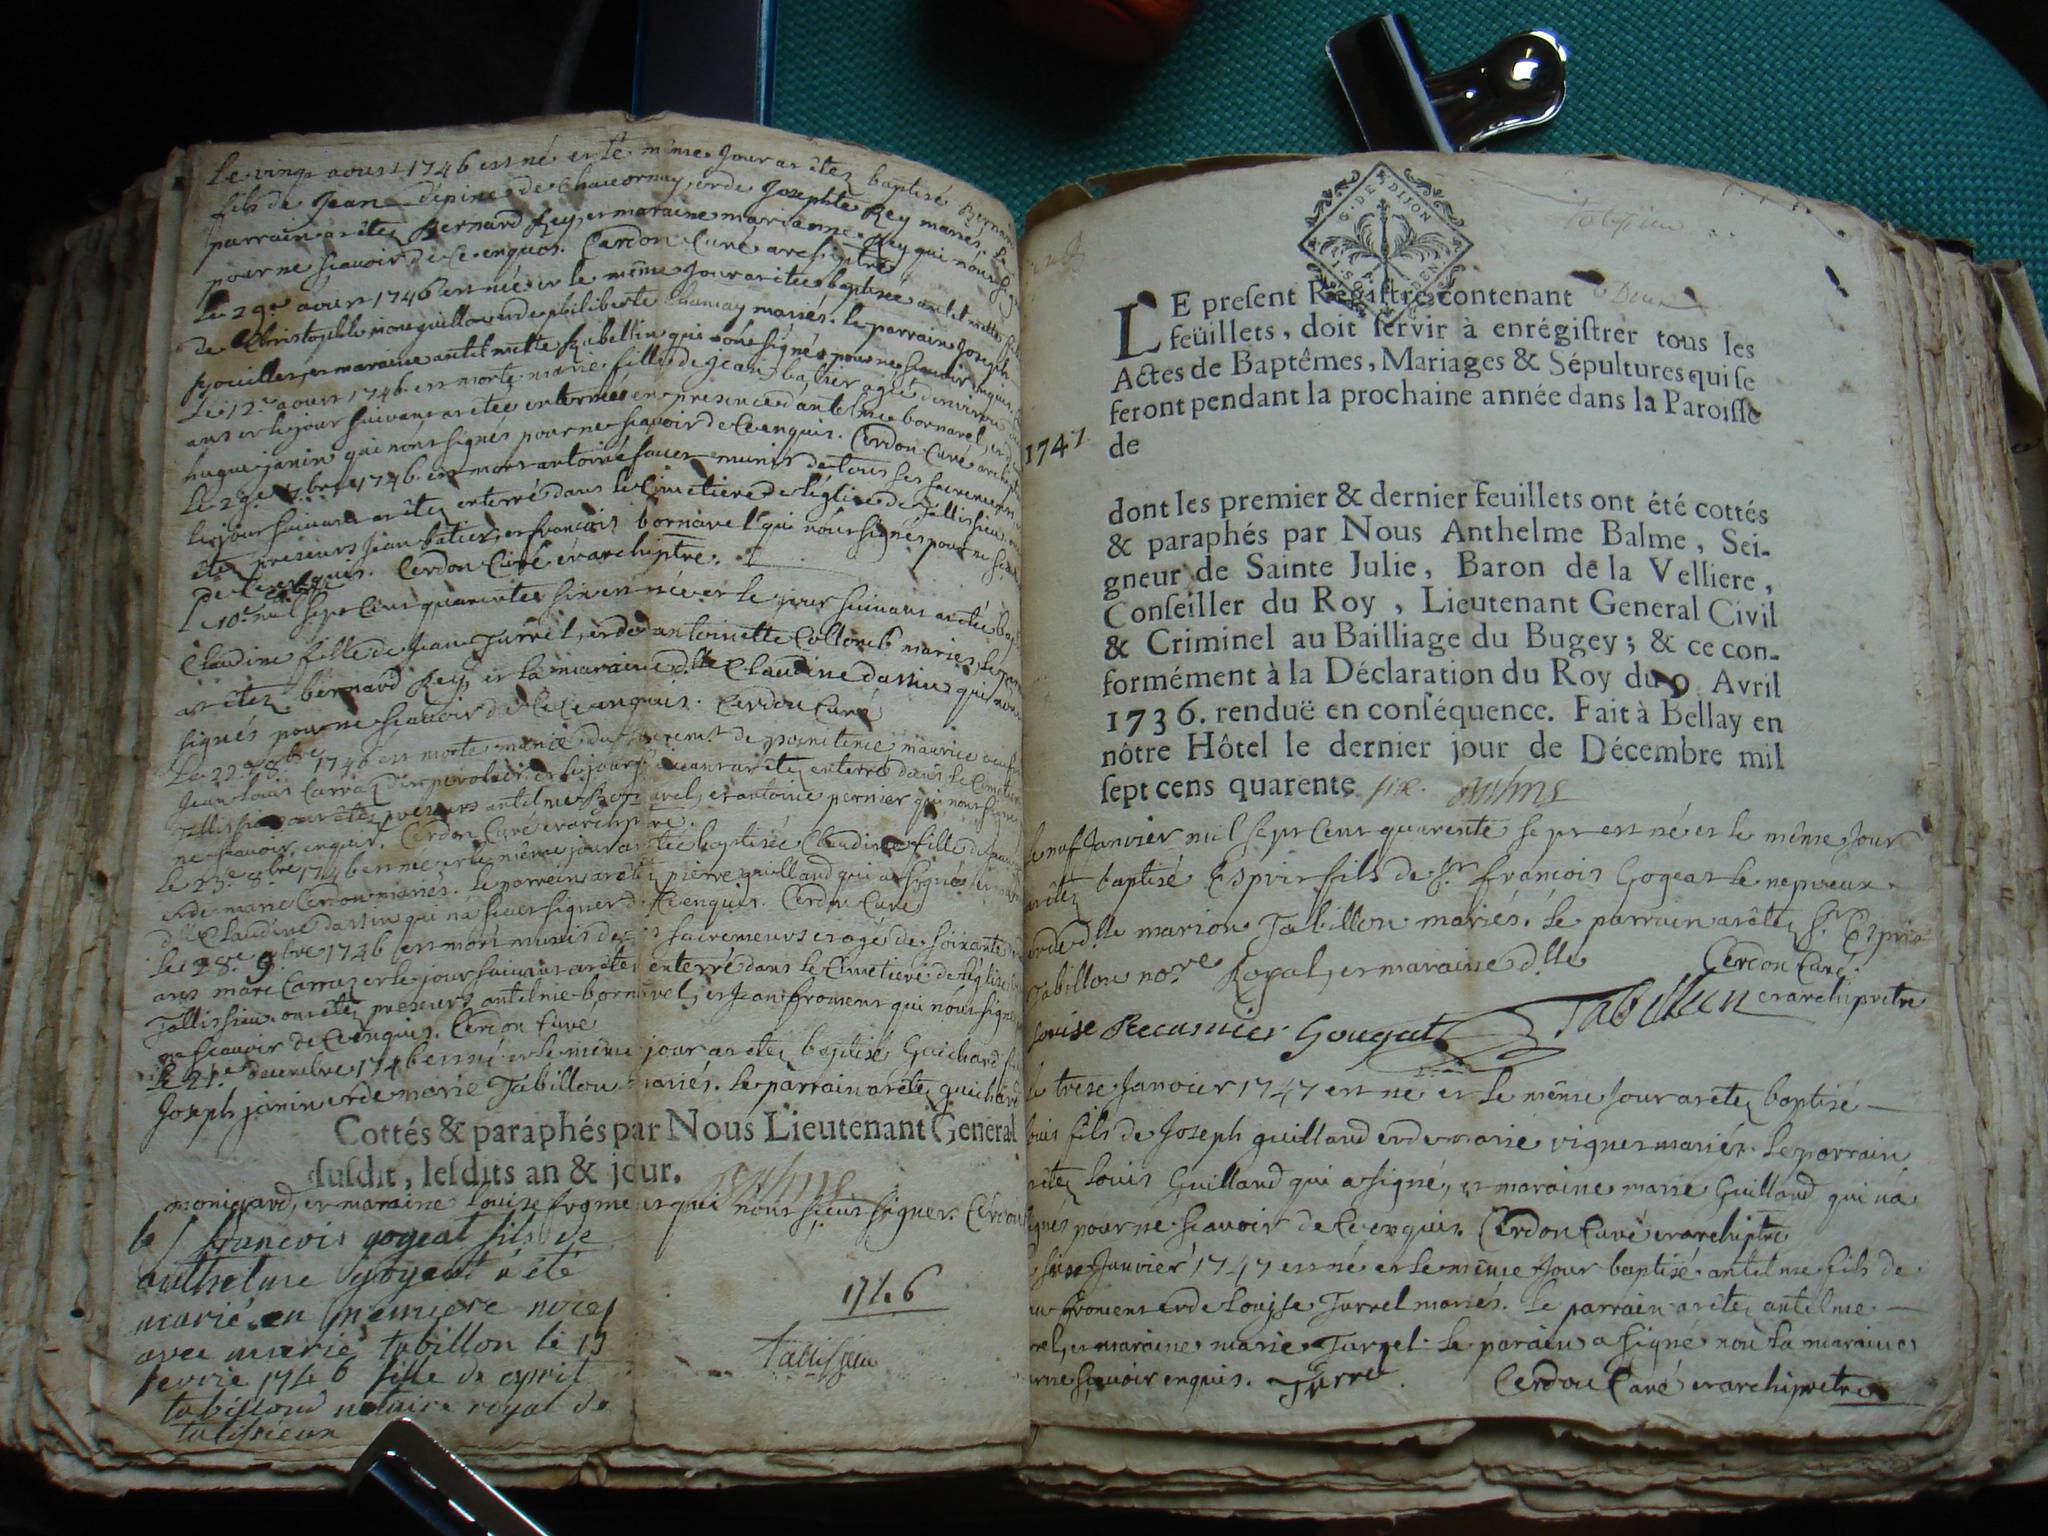 Le vingt aoust 1746 est né et le même Jour at êtez baptisé
fils de Jean dépine de Chavornay, et de Josephte Rey mariés. le
parrain at êtez Bernard Rey, et maraine marianne Rey qui nont
pour ne scavoir de ce enquis. Cerdon Curé archiptre
Le 29e aoust 1746 est née et le même Jour at etée baptisée antelmette
de Christophle et de philiberte mariés. le parrain Joseph
et maraine antelmette Rabellin qui nont signés pour ne scavoir enquis.
Le 12e aoust 1746 est morte marie fille de Jean batier agée d'environ
ans et le jour suivant at etée enterrée en presence d'antelme bornarel, et
hugue janin qui nont signés pour ne scavoir de ce enquis. Cerdon Curé
Le 29e 7bre 1746 est mort antoine munis de tous ses sacremens
le jour suivant at êtez enterré dans le Cimetiere de l'église de Tallissieu
presens Jean batier, et françois bornarel qui nont signés pour ne
de ce enquis. Cerdon Curé et archiptre.
mil sept Cent quarente six est née et le jour suivant at etée
Claudine fille de Jean Turrel, et de antoinette Collomb mariés, le
at êtez bernard Rey, et la maraine dlle Claudine dassin qui
signés pour ne scavoir de ce enquis. Cerdon Curé
Le 22e 8bre 1746 est morte du sacremt de penitence maurice
Jean Louis Carraz et le jour suivant at êtez enterré dans le
Tallissieu presens antelme bornarel, et antoine pernier qui nont
ne scavoir enquis. Cerdon Curé et archiptre.
Le 23e 8bre 1746 est née et le même jour at etée baptisée Claudine fille de
et de marie Cerdon mariés. le parrain at êtez pierre guilland qui a signé
dlle Claudine dassin qui na sceu signer de ce enquis. Cerdon Curé
Le 28e 9bre 1746 est mort munis de sacremens et agé de soixante
ans marc Carraz et le jour suivant at êtez enterré dans le Cimetiere de l'église
Tallissieu. presens antelme bornarel, et Jean froment qui nont
ne scavoir de ce enquis. Cerdon Curé
Le 21e decembre 1746 est né et le même jour at etez baptisé Guichard
Joseph janin et de marie Tabillon mariés. le parrain at êtez guichard
Cottés & paraphés par Nous Lieutenant General
susdit, lesdits an & jour.
monigard, et maraine Louise froment qui nont sceus signer. Cerdon
françois gogeat fils de
anthelme gogeat a été
marié en premiere noces
avec marie tabillon le 15
fevrie 1746 fille de esprit
tabillond notaire royal de
talissieux
1746
Tallissieu
G. DE DIJON
LE present Régistre contenant Deux
feüillets, doit servir à enrégistrer tous les
Actes de Baptêmes, Mariages & Sépultures qui se
feront pendant la prochaine année dans la Paroisse
1747
de
dont les premier & dernier feuillets ont été cottés
& paraphés par Nous Anthelme Balme, Sei-
gneur de Sainte Julie, Baron de la Velliere,
Conseiller du Roy, Lieutenant General Civil
& Criminel au Bailliage du Bugey; & ce con-
formément à la Déclaration du Roy du 9 Avril
1736. renduë en conséquence. Fait à Bellay en
nôtre Hôtel le dernier jour de Décembre mil
sept cens quarente six.
Le neuf Janvier mil sept Cent quarente sept est né et le même Jour
at êtez baptisé Esprit fils de Sr françois Gogeat le nepveux
et de dlle marion Tabillon mariés. le parrain at êtez Sr Esprit
Tabillon nore Royal, et maraine dlle Cerdon Curé
Louise Recamier Gougeat Tabillon et archiprêtre
Le treze Janvier 1747 est né et le même Jour at etez baptisé
Louis fils de Joseph guilland et de marie vignes mariés. le parrain
êtez Louis Guilland qui a signé, et maraine marie Guilland qui na
signés pour ne scavoir de ce enquis. Cerdon Curé et archiptre
seize Janvier 1747 est né et le même Jour baptisé antelme fils de
froment et de Louise Turrel mariés. le parrain at êtez antelme
et maraine marie Turrel. le parain a signé non la maraine
pour ne scavoir enquis. Turrel. Cerdon Curé et archiprêtre